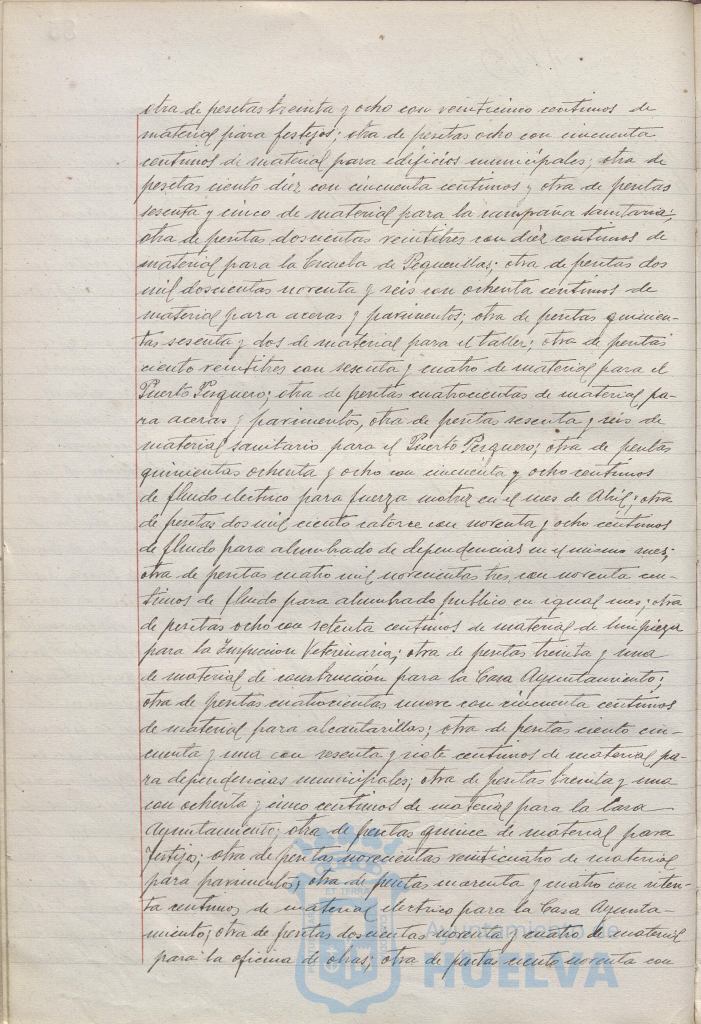 otra de pesetas treinta y ocho con veinticinco centimos de
material para festejos; otra de pesetas ocho con cincuenta
centimos de material para edificios municipales; otra de
pesetas ciento diez con cincuenta centimos y otra de pesetas
sesenta y cinco de material para la campaña sanitaria;
otra de pesetas doscientas veintitres con diez centimos de
material para la Escuela de Pequeñitas; otra de pesetas dos
mil doscientas noventa y seis con ochenta centimos de
material para aceras y pavimentos; otra de pesetas quinien-
tas sesenta y dos de material para el taller; otra de pesetas
ciento veintitres con sesenta y cuatro de material para el
Puerto Pesquero; otra de pesetas cuatrocientas de material pa-
ra aceras y pavimentos, otra de pesetas sesenta y seis de
material sanitario para el Puerto Pesquero; otra de pesetas
quinientas ochenta y ocho con cincuenta y ocho centimos
de fluido electrico para fuerza motriz en el mes de Abril; otra
de pesetas dos mil ciento catorce con noventa y ocho centimos
de fluido para alumbrado de dependencias en el mismo mes;
otra de pesetas cuatro mil novecientas tres con noventa cen-
timos de fluido para alumbrado publico en igual mes; otra
de pesetas ocho con setenta centimos de material de limpieza
para la Inspeccion Veterinaria; otra de pesetas treinta y una
de material de construcción para la Casa Ayuntamiento;
otra de pesetas cuatrocientas nueve con cincuenta centimos
de material para alcantarillas; otra de pesetas ciento cin-
cuenta y una con sesenta y siete centimos de material pa-
ra dependencias municipales; otra de pesetas treinta y una
con ochenta y cinco centimos de material para la Casa
Ayuntamiento; otra de pesetas quince de material para
festejos; otra de pesetas novecientas veinticuatro de material
para pavimentos; otra de pesetas cuarenta y cuatro con seten-
ta centimos de material electrico para la Casa Ayunta-
miento; otra de pesetas doscientas noventa y cuatro de material
para la oficina de obras; otra de pesetas ciento noventa con
Ayuntamiento de
HUELVA